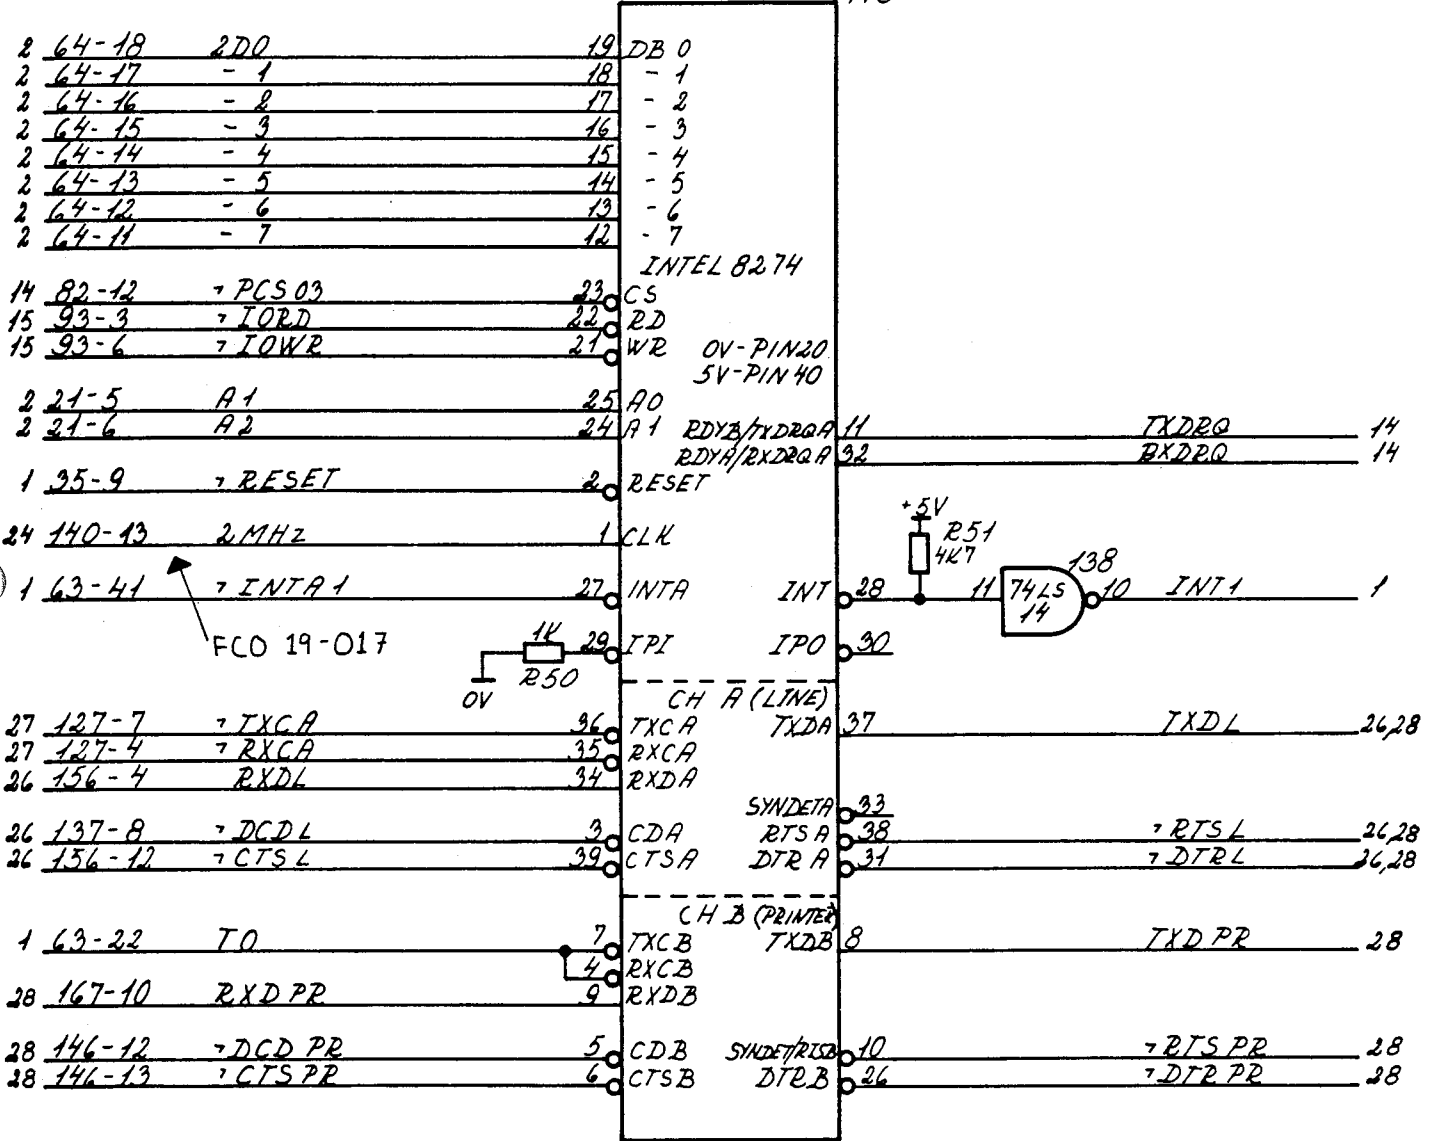 2 64-18 2D0 19 DB 0
2 64-17 - 1 18 - 1
2 64-16 - 2 17 - 2
2 64-15 - 3 16 - 3
2 64-14 - 4 15 - 4
2 64-13 - 5 14 - 5
2 64-12 - 6 13 - 6
2 64-11 - 7 12 - 7
INTEL 8274
14 82-12 ¬PCS03 23 CS
15 93-3 ¬IORD 22 RD
15 93-6 ¬IOWR 21 WR
0V-PIN20
5V-PIN 40
2 21-5 A1 25 A0
2 21-6 A2 24 A1 RDYB/TXDRQA 11 TXDRQ 14
RDYA/RXDRQA 32 RXDRQ 14
1 35-9 ¬RESET 2 RESET
+5V
R51
4K7
24 140-13 2MHz 1 CLK
138
1 63-41 ¬INTA1 27 INTA INT 28 11 74LS 10 INT1 1
14
FCO 19-017
1K 29 IPI IPO 30
R50
0V
CH A (LINE)
27 127-7 ¬TXCA 36 TXCA TXDA 37 TXDL 26,28
27 127-4 ¬RXCA 35 RXCA
26 156-4 RXDL 34 RXDA
SYNDETA 33
26 137-8 ¬DCDL 3 CDA RTSA 38 ¬RTSL 26,28
26 156-12 ¬CTSL 39 CTSA DTRA 31 ¬DTRL 26,28
CH B (PRINTER)
1 63-22 T0 7 TXCB TXDB 8 TXDPR 28
4 RXCB
28 167-10 RXDPR 9 RXDB
28 146-12 ¬DCDPR 5 CDB SYNDET/RTSB 10 ¬RTSPR 28
28 146-13 ¬CTSPR 6 CTSB DTRB 26 ¬DTRPR 28